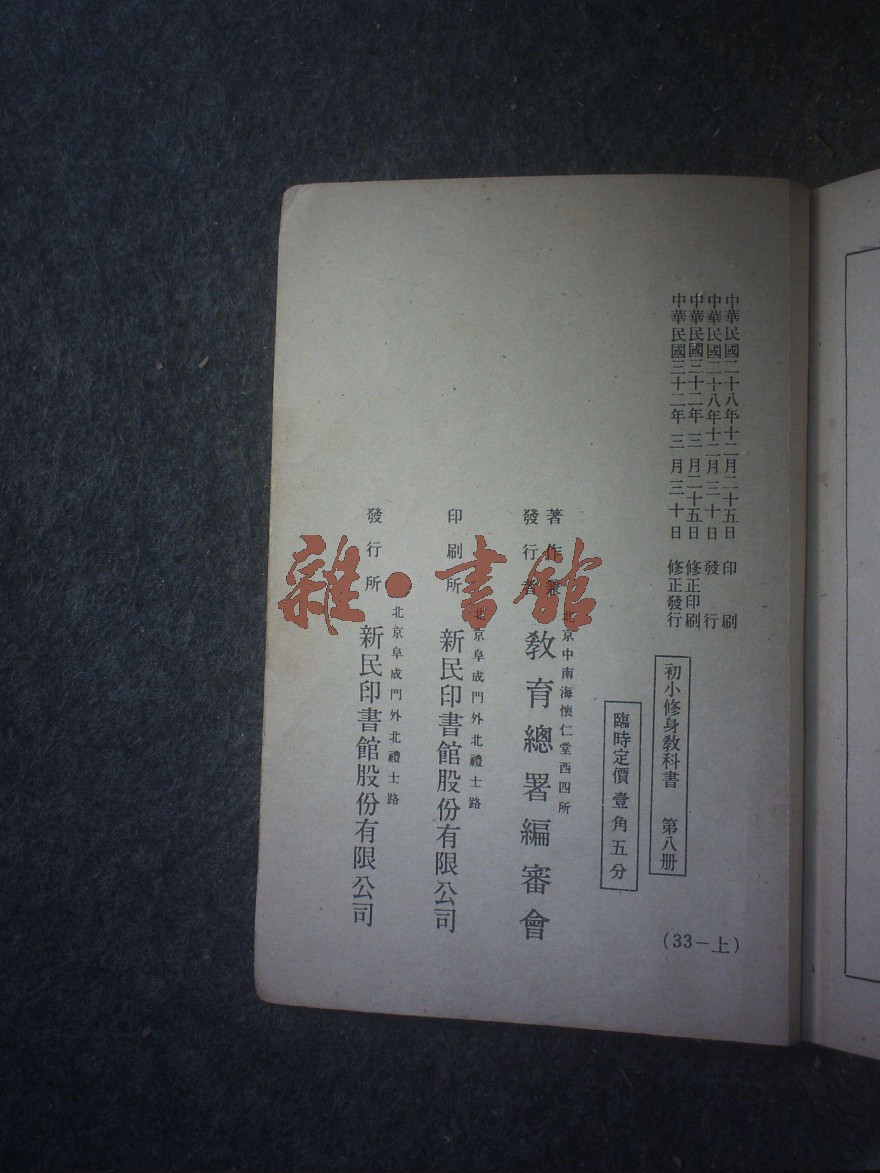 中華民國二十八年十二月二十五日 印刷
中華民國二十八年十二月三十日 發行
中華民國三十二年三月二十五日 修正印刷
中華民國三十二年三月三十日 修正發行
初小修身教科書 第八册
臨時定價壹角五分
(33-上)
著作兼
發行者
北京中南海懷仁堂西四所
教育總署編審會
印刷所
北京阜成門外北禮士路
新民印書館股份有限公司
發行所
北京阜成門外北禮士路
新民印書館股份有限公司
雜·書館